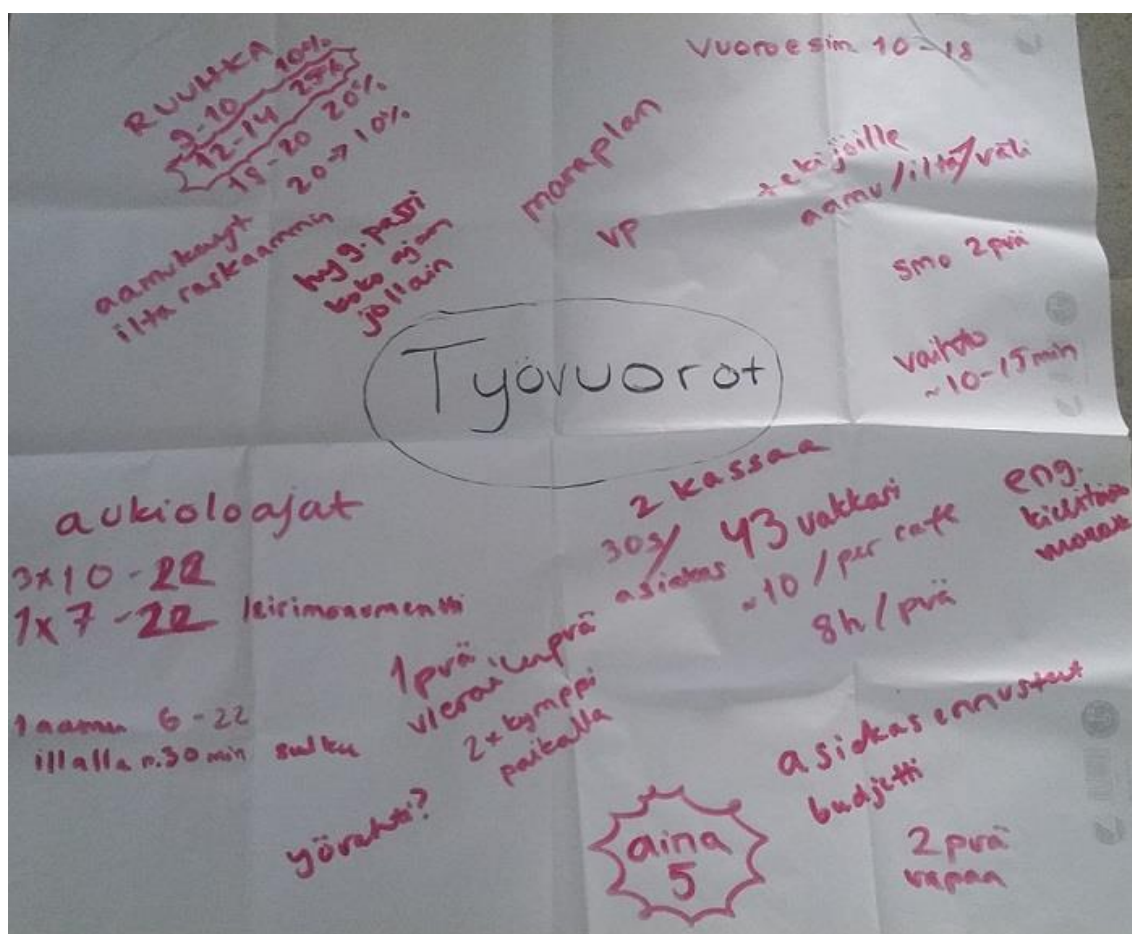 RUUHKA
9-10 10%
12-14 25%
18-20 20%
20→ 10%
aamukäyt
ilta raskaammin
hyg. passi
koko ajan
jollain
maraplan
VP
Vuoroesim 10-18
tekijöille
aamu/ilta/väli
smo 2 pvä
vaihto
~10-15min
Työvuorot
aukioloajat
3x10-22
1x7-22 leirimonumentti
1 aamu 6-22
illalla n.30 min sulku
yövahti?
1 pvä
vierailupvä
2x kymppi
paikalla
2 kassaa
30s/
asiakas
43 vakkari
~10/per cafe
8h/pvä
eng.
kielitaito
aina
5
asiakasennusteet
budjetti
2 pvä
vapaa